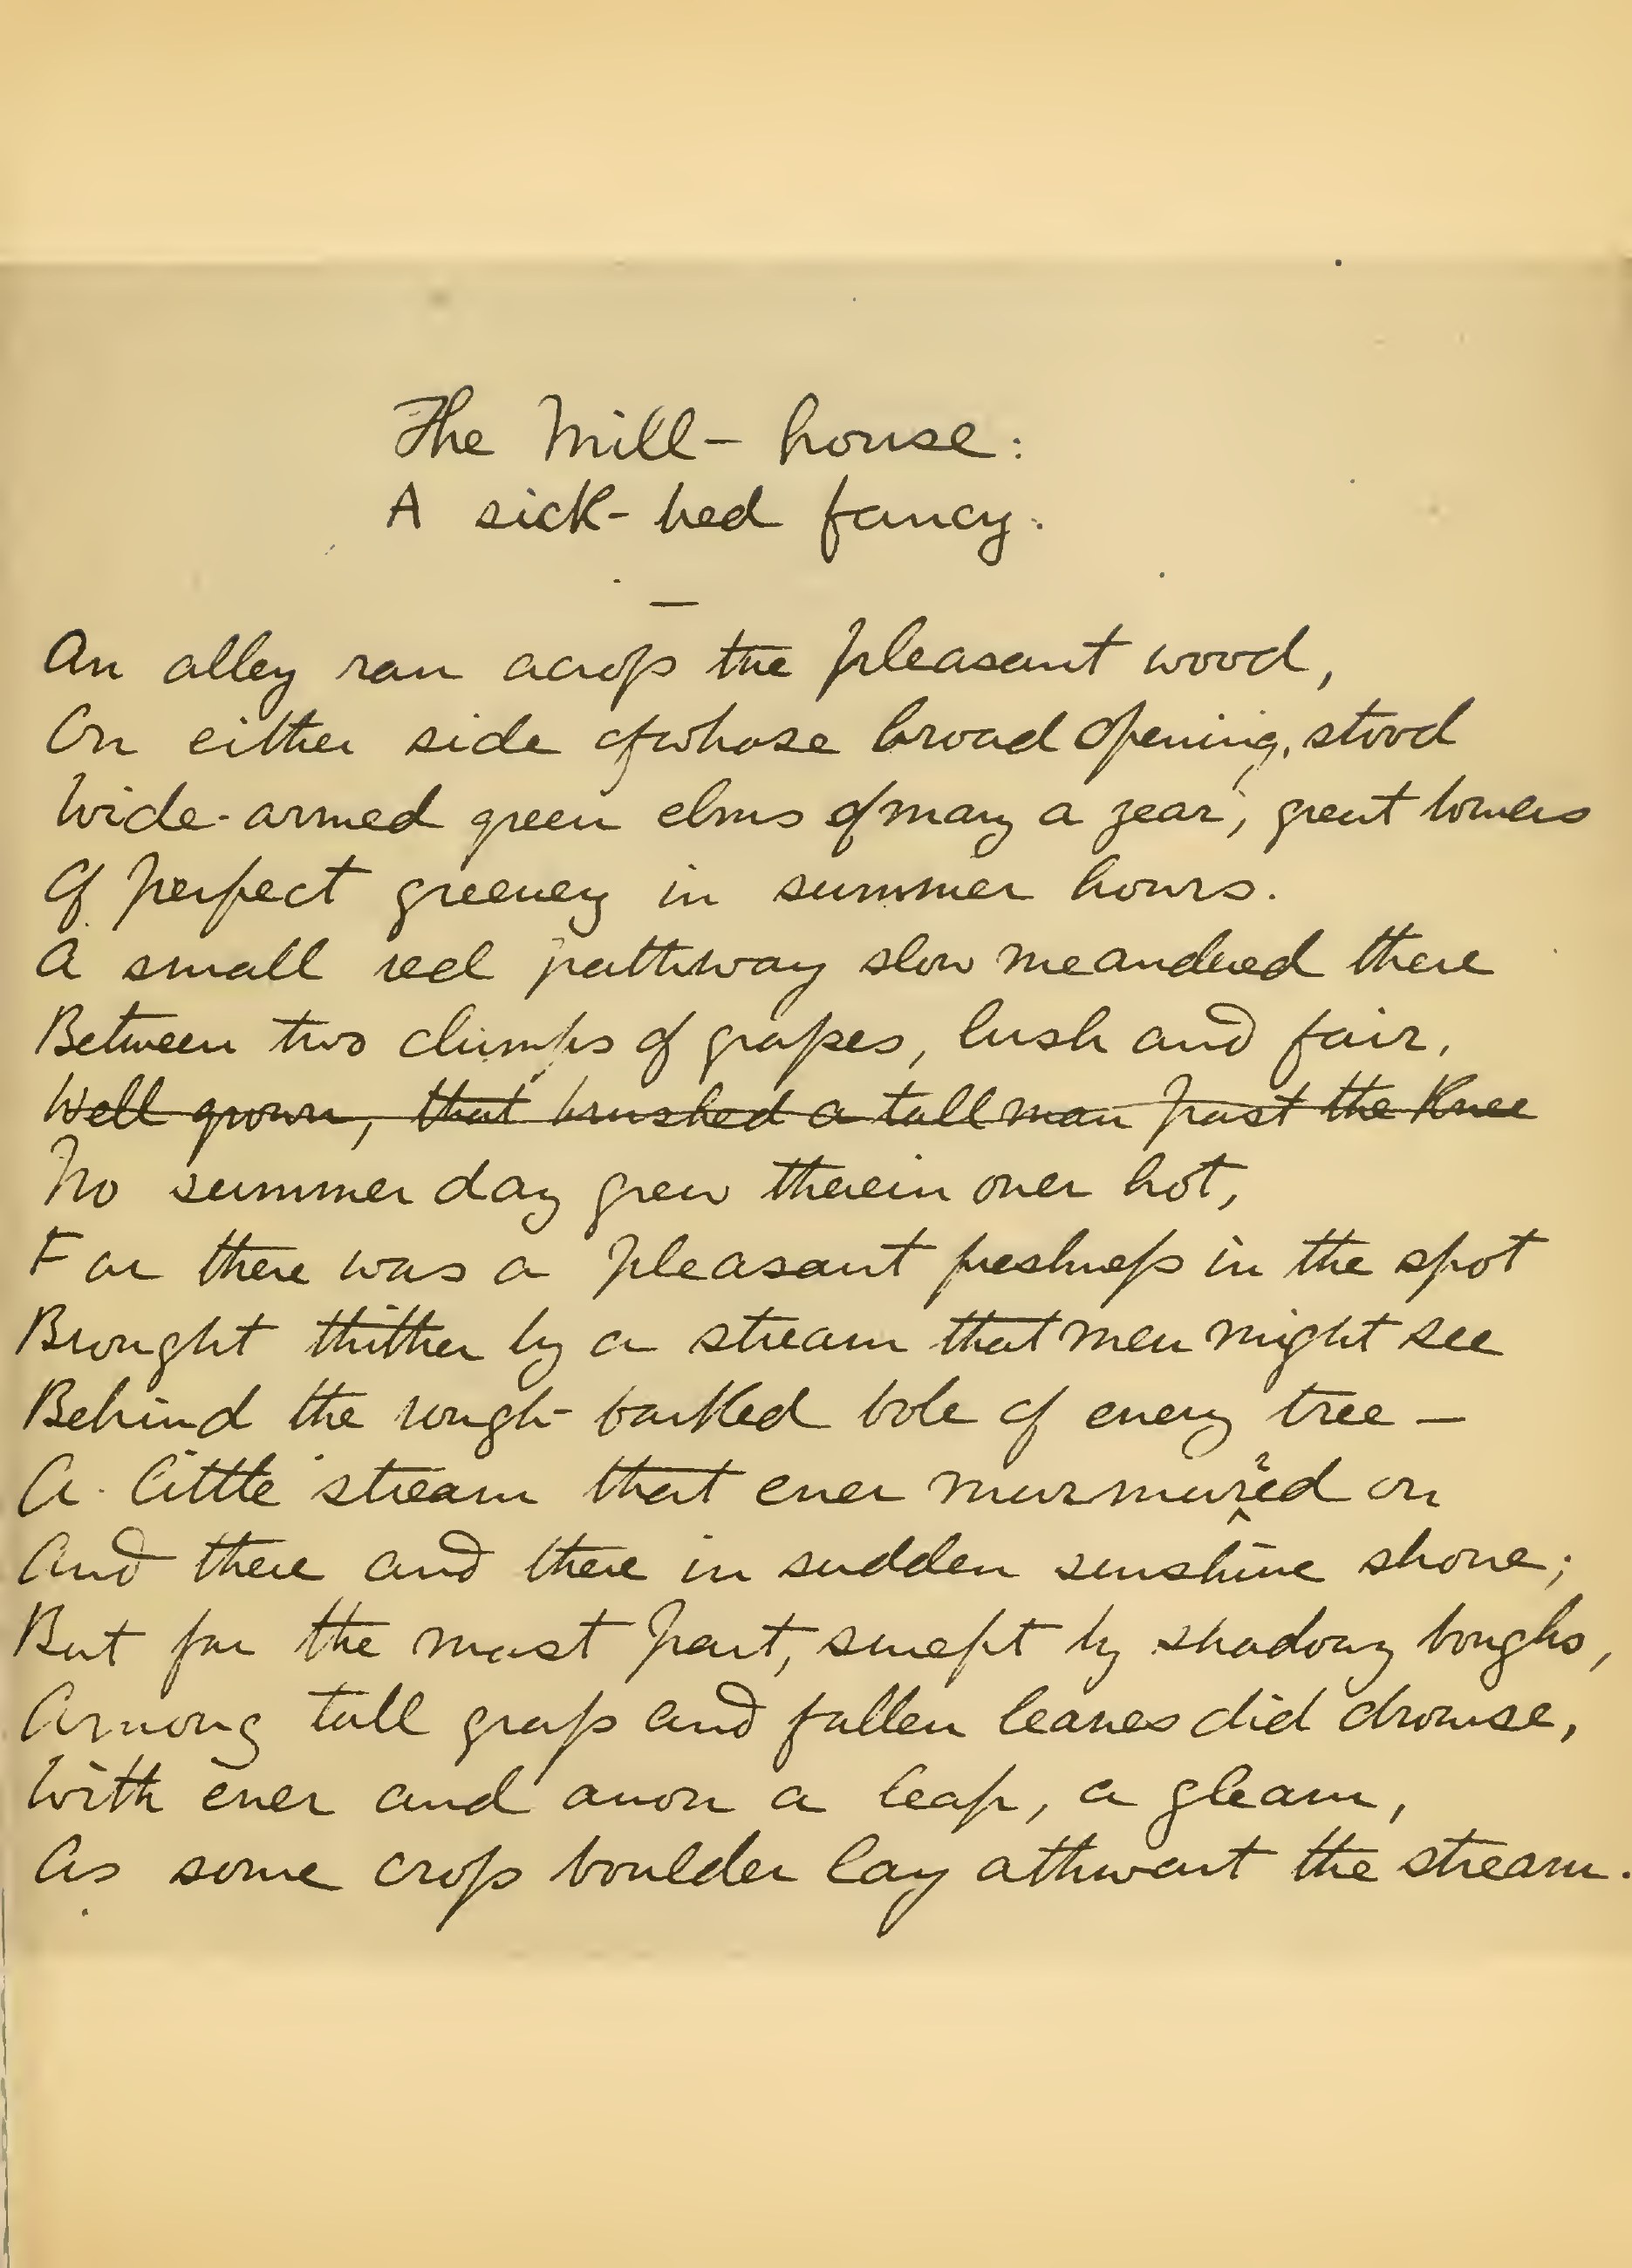 The Mill-house:
A sick-bed fancy.
An alley ran across the pleasant wood,
On either side of whose broad opening, stood
Wide-armed green elms of many a year, great bowers
Of perfect greenery in summer hours.
A small red pathway slow meandered there
Between two clumps of grapes, lush and fair,
Well grown, that brushed a tall man past the Knee
No summer day grew therein over hot,
For there was a pleasant freshness in the spot
Brought thither by a stream that men might see
Behind the rough-barked bole of every tree—
A little stream that ever murmured on
And there and there in sudden sunshine shone;
But for the most part, swept by shadowy boughs,
Among tall grass and fallen leaves did drowse,
With ever and anon a leap, a gleam,
As some cross boulder lay athwart the stream.